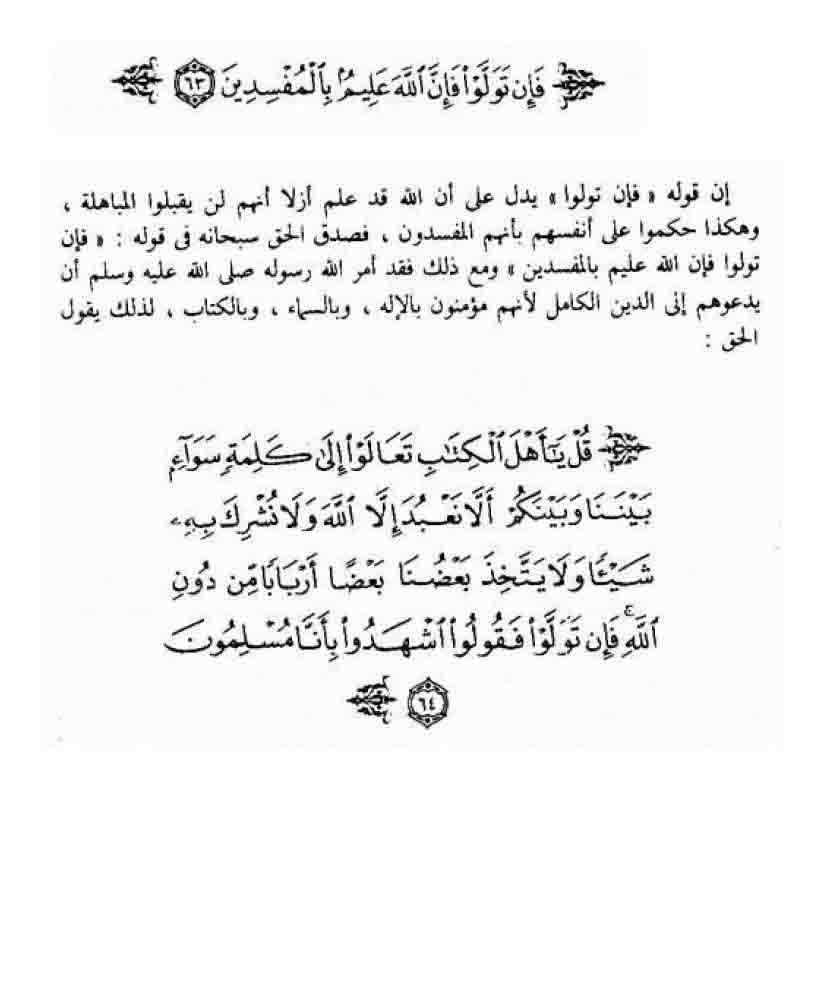 فَإِن تَوَلَّوْا۟ فَإِنَّ ٱللَّهَ عَلِيمٌۢ بِٱلْمُفْسِدِينَ ٦٣
إن قوله « فإن تولوا » يدل على أن الله قد علم أزلا أنهم لن يقبلوا المباهلة ،
وهكذا حكموا على أنفسهم بأنهم المفسدون ، فصدق الحق سبحانه فى قوله : « فإن
تولوا فإن الله عليم بالمفسدين » ومع ذلك فقد أمر الله رسوله صلى الله عليه وسلم أن
يدعوهم إلى الدين الكامل لأنهم مؤمنون بالإله ، وبالسماء ، وبالكتاب ، لذلك يقول
الحق :
قُلْ يَـٰٓأَهْلَ ٱلْكِتَـٰبِ تَعَالَوْا۟ إِلَىٰ كَلِمَةٍ سَوَآءٍۭ
بَيْنَنَا وَبَيْنَكُمْ أَلَّا نَعْبُدَ إِلَّا ٱللَّهَ وَلَا نُشْرِكَ بِهِۦ
شَيْـًٔا وَلَا يَتَّخِذَ بَعْضُنَا بَعْضًا أَرْبَابًا مِّن دُونِ
ٱللَّهِ ۚ فَإِن تَوَلَّوْا۟ فَقُولُوا۟ ٱشْهَدُوا۟ بِأَنَّا مُسْلِمُونَ
٦٤